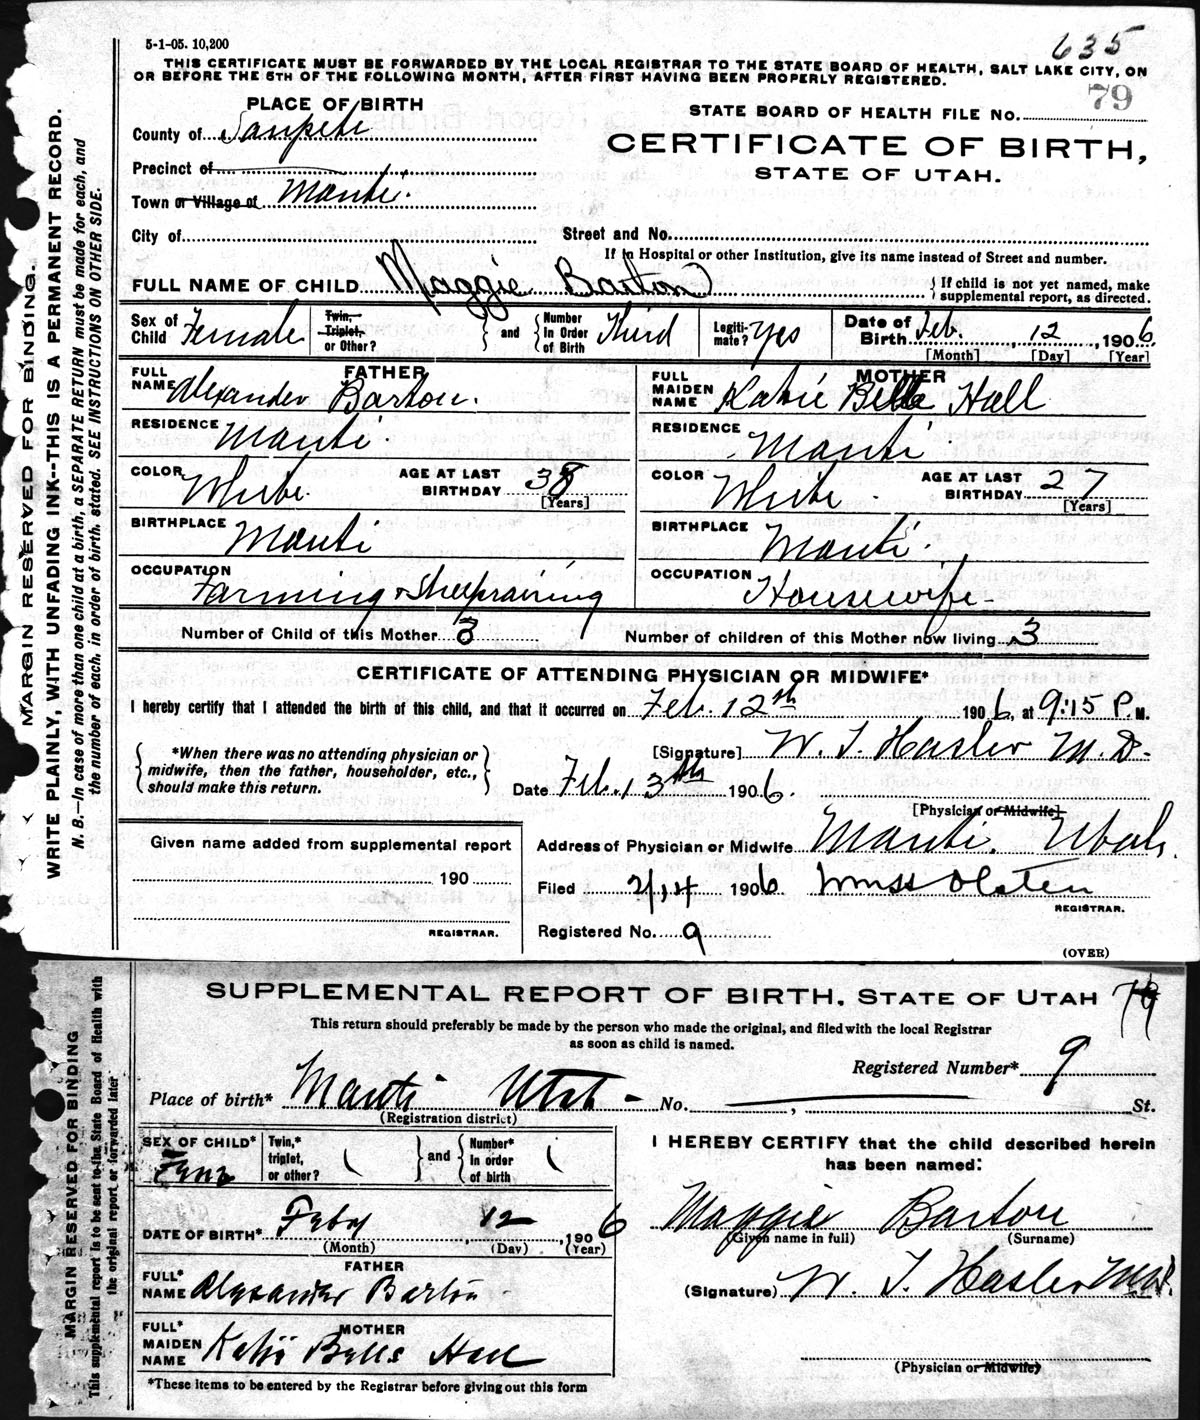 5-1-05. 10,200
635
THIS CERTIFICATE MUST BE FORWARDED BY THE LOCAL REGISTRAR TO THE STATE BOARD OF HEALTH, SALT LAKE CITY, ON
OR BEFORE THE 5TH OF THE FOLLOWING MONTH, AFTER FIRST HAVING BEEN PROPERLY REGISTERED.
PLACE OF BIRTH
79
STATE BOARD OF HEALTH FILE NO.
County of Sanpete
CERTIFICATE OF BIRTH,
Precinct of
STATE OF UTAH.
Town or Village of Manti.
City of
Street and No.
If in Hospital or other Institution, give its name instead of Street and number.
FULL NAME OF CHILD Maggie Barton
If child is not yet named, make
supplemental report, as directed.
Sex of Child Female
Twin, Triplet, or Other?
and
Number in Order of Birth Third
Legitimate? Yes
Date of Birth Feb. 12, 1906
[Month] [Day] [Year]
FATHER
FULL NAME Alexander Barton.
RESIDENCE Manti.
COLOR White. AGE AT LAST BIRTHDAY 38 [Years]
BIRTHPLACE Manti
OCCUPATION Farming & Sheepraising
MOTHER
FULL MAIDEN NAME Katie Belle Hall
RESIDENCE Manti
COLOR White. AGE AT LAST BIRTHDAY 27 [Years]
BIRTHPLACE Manti.
OCCUPATION Housewife
Number of Child of this Mother 3
Number of children of this Mother now living 3
CERTIFICATE OF ATTENDING PHYSICIAN OR MIDWIFE*
I hereby certify that I attended the birth of this child, and that it occurred on Feb. 12th 1906, at 9:15 P.M.
*When there was no attending physician or
midwife, then the father, householder, etc.,
should make this return.
[Signature] W. T. Hasler M.D.
Date Feb. 13th 1906.
[Physician or Midwife]
Given name added from supplemental report
190
REGISTRAR.
Address of Physician or Midwife Manti. Utah.
Filed 2/14 1906
REGISTRAR.
Registered No. 9
(OVER)
MARGIN RESERVED FOR BINDING.
WRITE PLAINLY, WITH UNFADING INK--THIS IS A PERMANENT RECORD.
N. B.—In case of more than one child at a birth, a SEPARATE RETURN must be made for each, and
the number of each, in order of birth, stated. SEE INSTRUCTIONS ON OTHER SIDE.
SUPPLEMENTAL REPORT OF BIRTH, STATE OF UTAH 79
This return should preferably be made by the person who made the original, and filed with the local Registrar
as soon as child is named.
Registered Number* 9
Place of birth* Manti Utah - No. , St.
(Registration district)
SEX OF CHILD* Fem
Twin,* triplet, or other?
and
Number* in order of birth
DATE OF BIRTH* Feby 12, 1906
(Month) (Day) (Year)
FATHER
FULL* NAME Alexander Barton
MOTHER
FULL* MAIDEN NAME Katie Belle Hall
*These items to be entered by the Registrar before giving out this form
I HEREBY CERTIFY that the child described herein
has been named:
Maggie Barton
(Given name in full) (Surname)
(Signature) W. T. Hasler M.D.
(Physician or Midwife)
MARGIN RESERVED FOR BINDING
This supplemental report is to be sent to the State Board of Health with
the original report or forwarded later